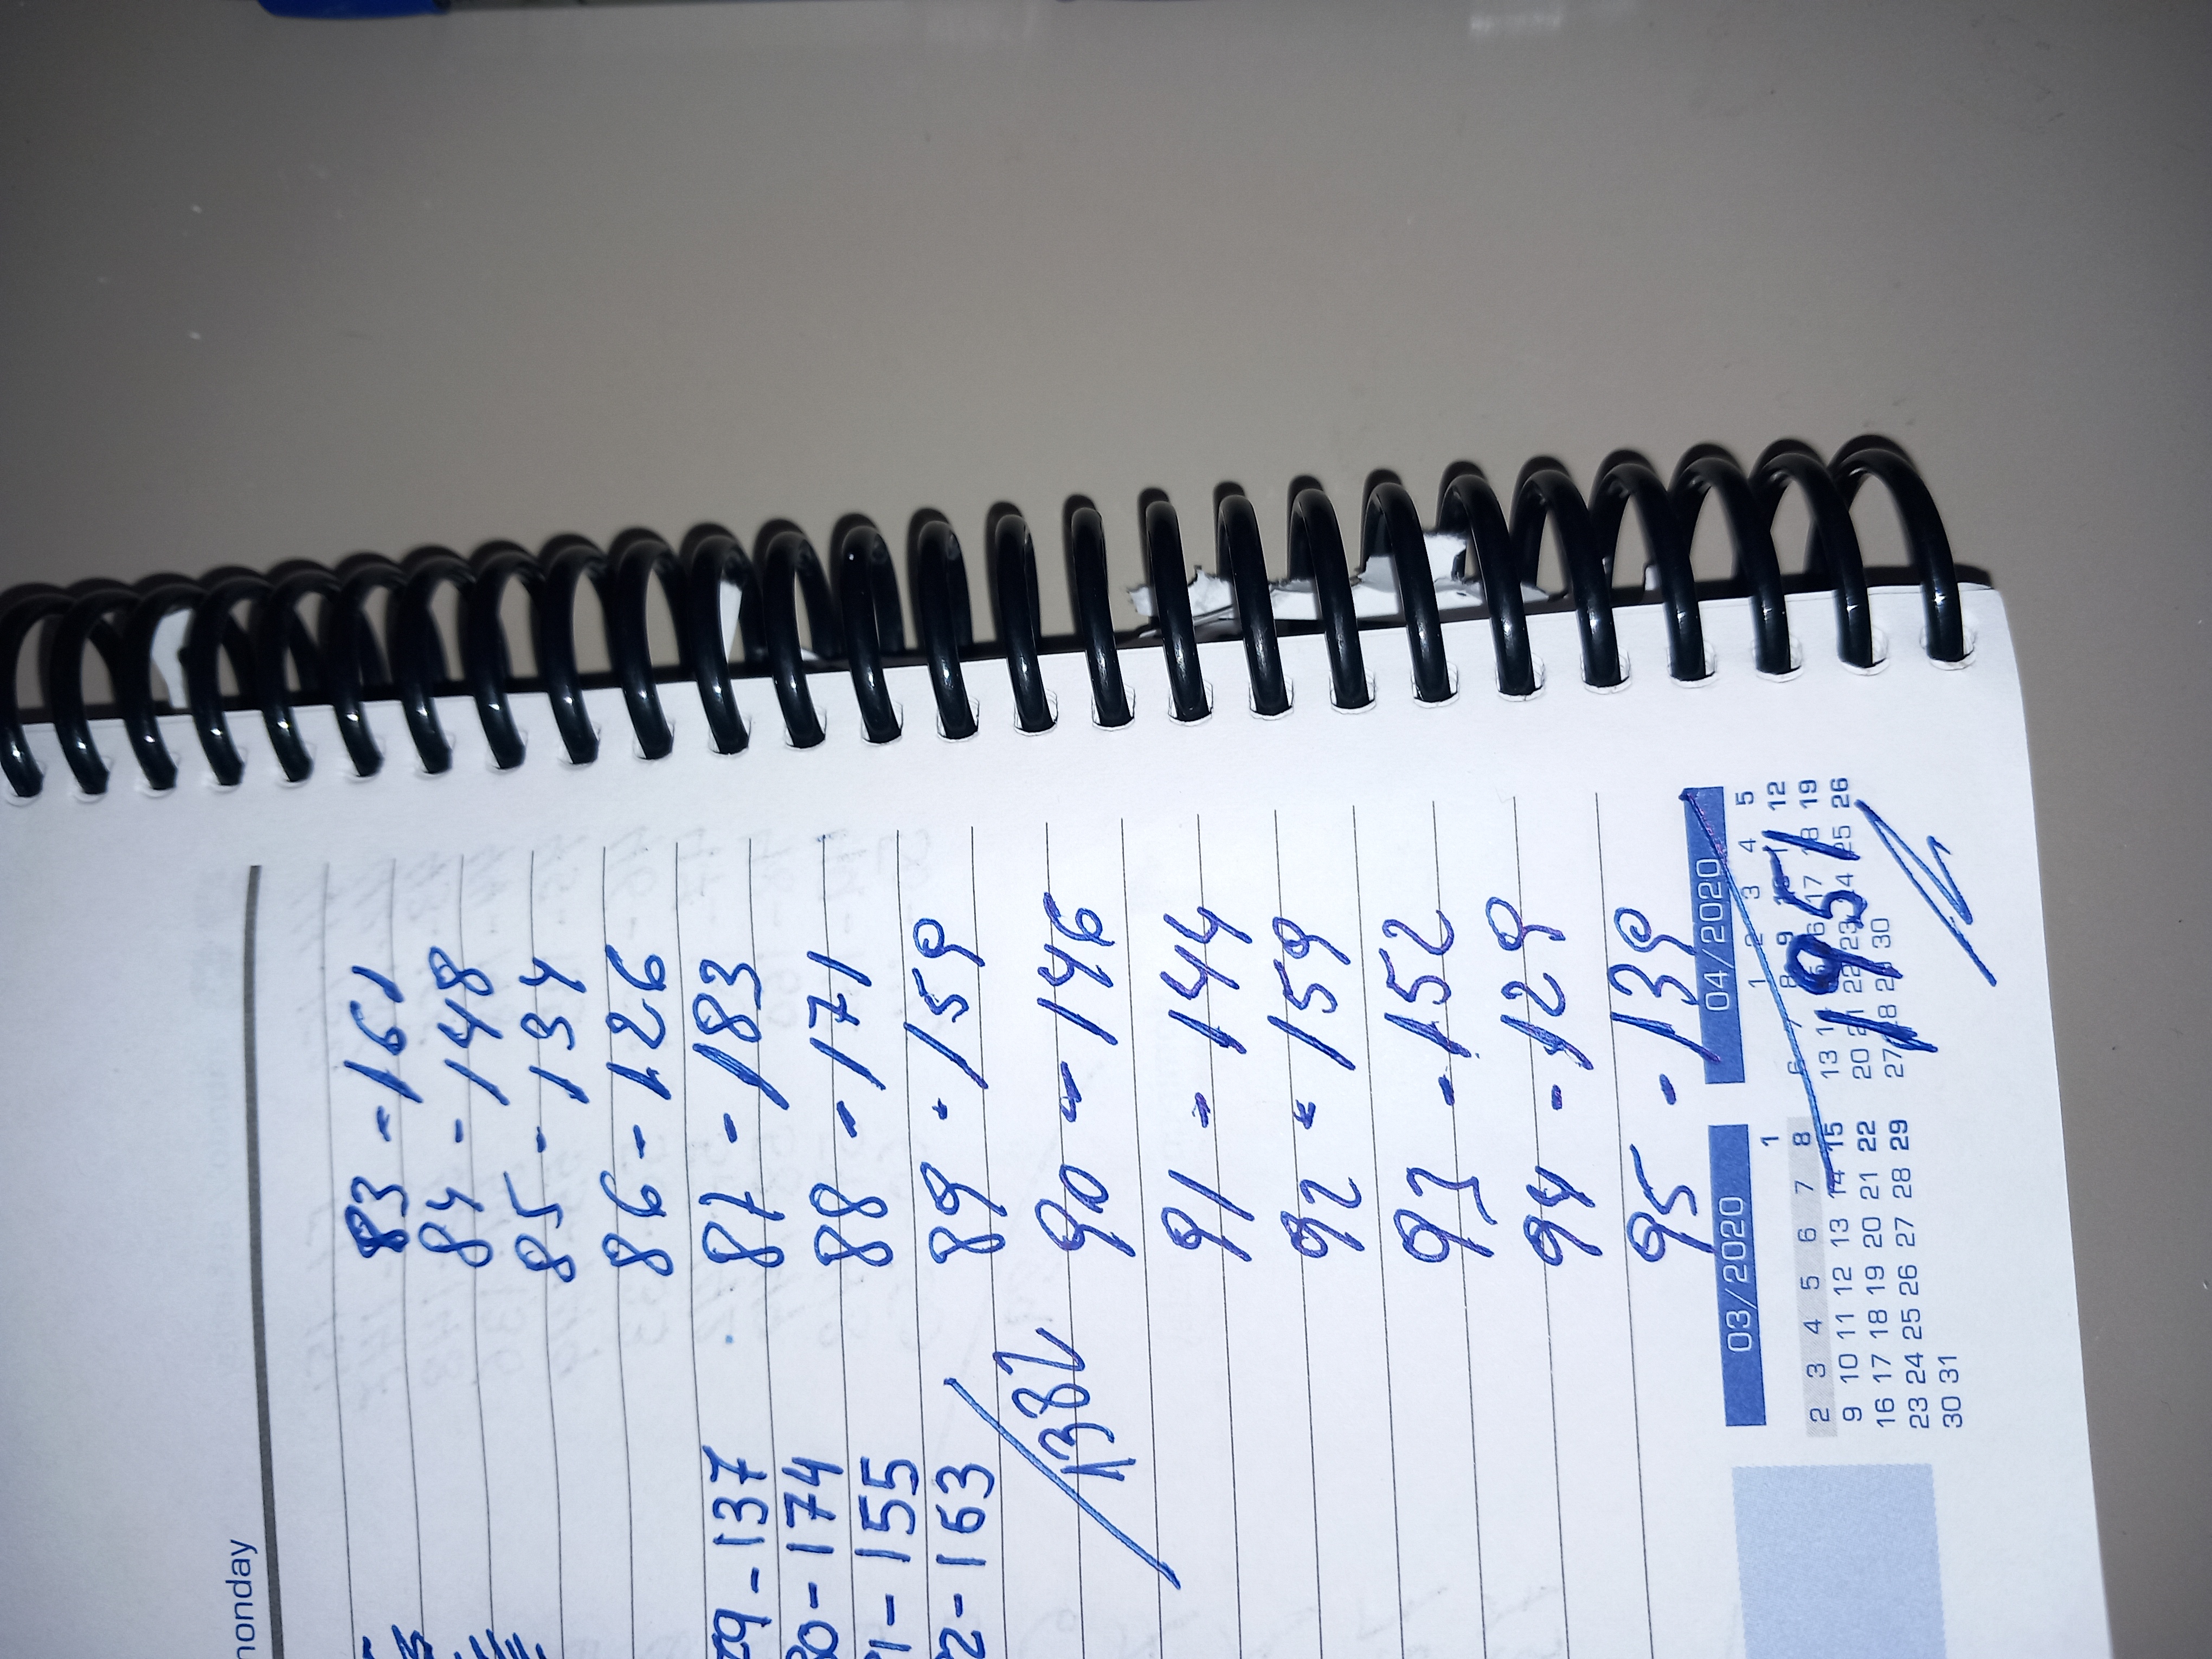 monday
83 - 161
84 - 148
85 - 134
86 - 126
87 - 183
88 - 171
89 - 159
90 - 146
91 - 144
92 - 159
93 - 152
94 - 129
95 - 139
1951
79 - 137
80 - 174
1 - 155
2 - 163
1382
03/2020
1
2 3 4 5 6 7 8
9 10 11 12 13 14 15
16 17 18 19 20 21 22
23 24 25 26 27 28 29
30 31
04/2020
1 2 3 4 5
6 7 8 9 12
13 17 18 19
20 21 22 23 24 25 26
27 28 30